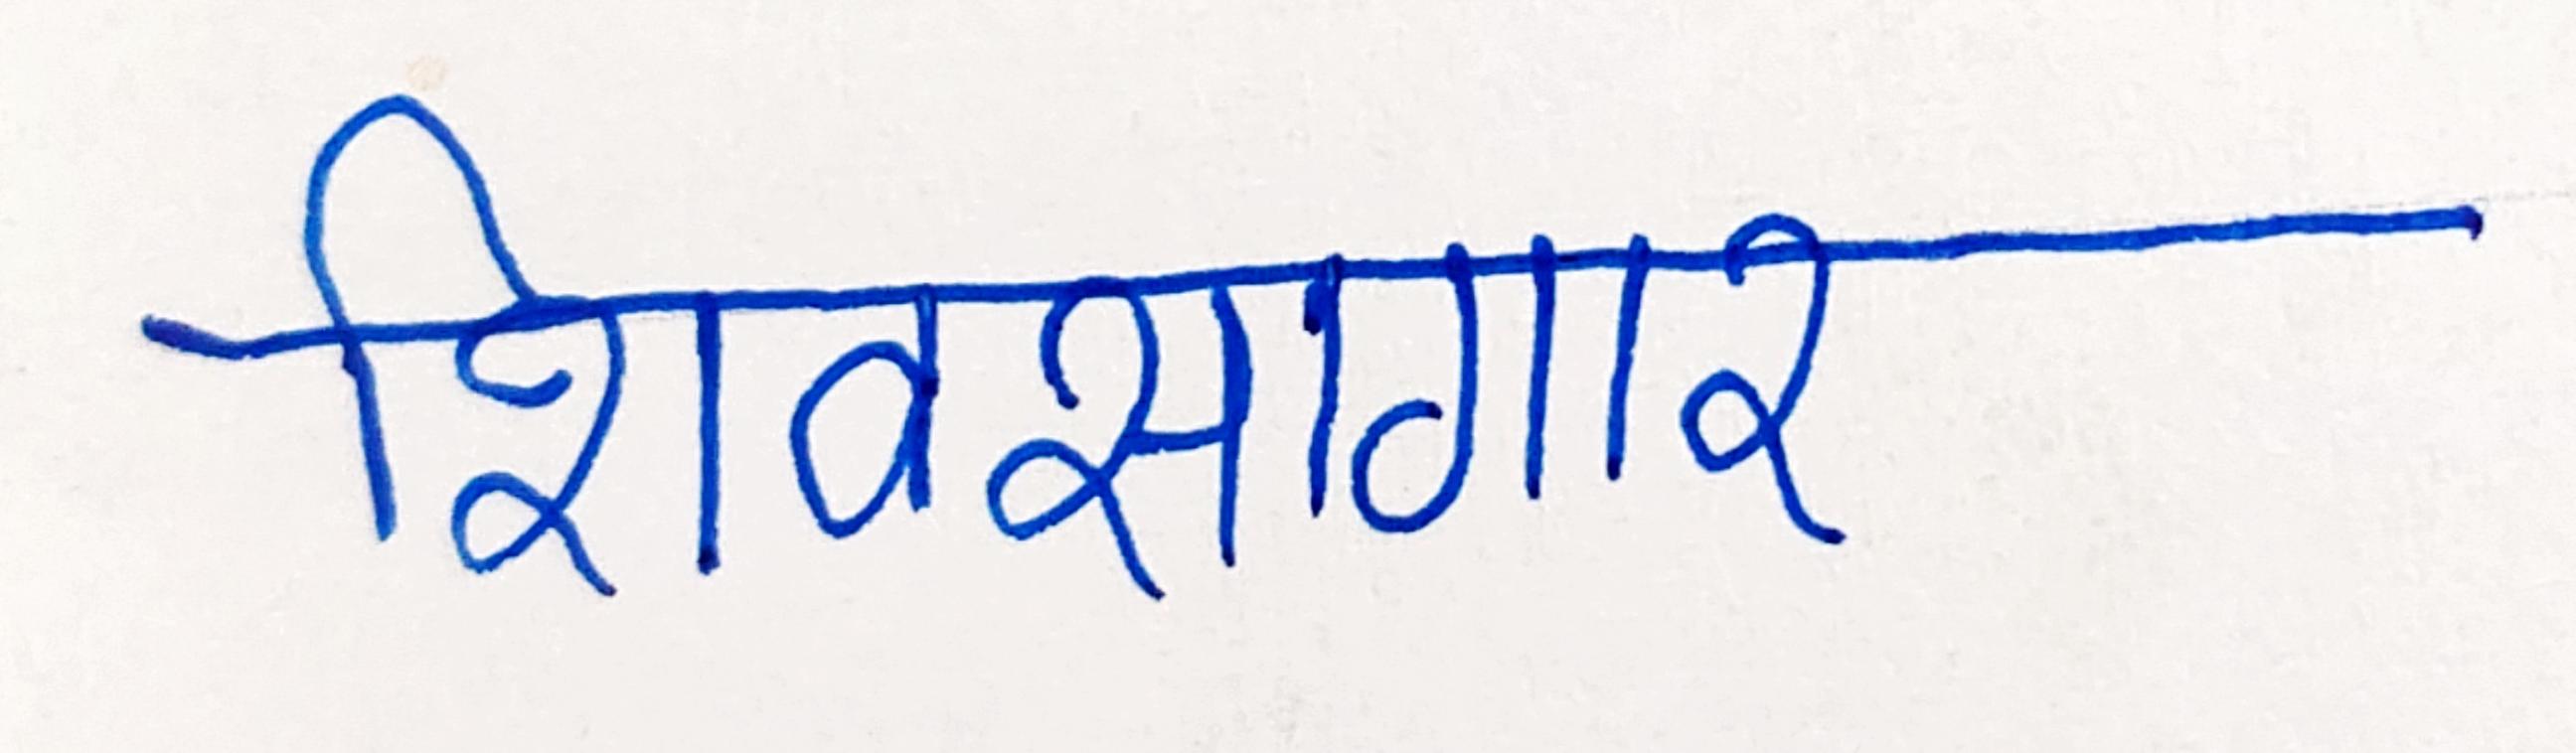 शिवसागार